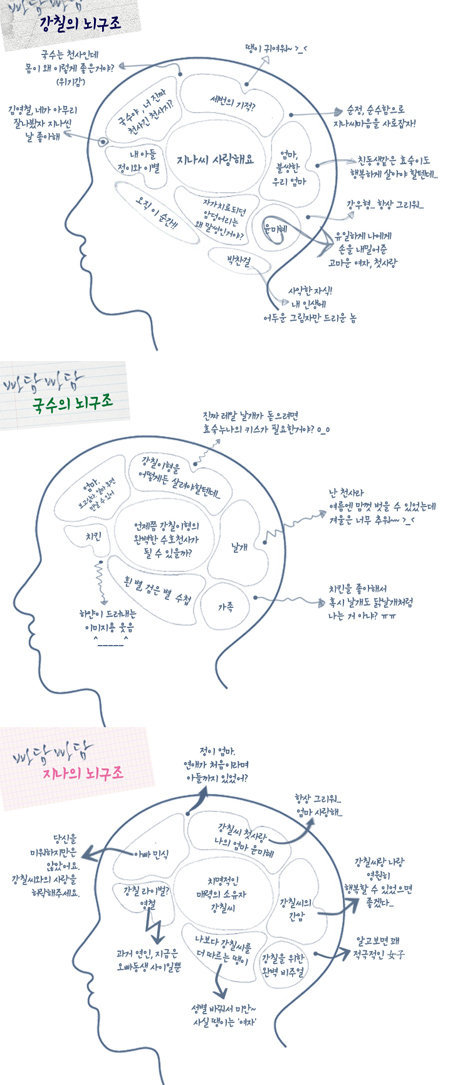 빠담빠담
강칠의 뇌구조
국수는 천사인데
몸이 왜 이렇게 좋은거야?
(위기감)
땡이 귀여워~ >_<
김영철, 네가 아무리
잘나봤자 지나씬
날 좋아해
국수야, 너 진짜
천사긴 천사지?
세번의 기적?
순정, 순수함으로
지나씨마음을 사로잡자!
내 아들
정이와 이별
지나씨 사랑해요
엄마,
불쌍한
우리 엄마
친동생같은 효숙이도
행복하게 살아야 할텐데...
오직 이 순간!!
자가치료되던
암덩어리는
왜 말썽인거야?
윤미혜
강우형... 항상 그리워...
유일하게 나에게
손을 내밀어준
고마운 여자, 첫사랑
박찬걸
사악한 자식!!
내 인생에
어두운 그림자만 드리운 놈
빠담빠담
국수의 뇌구조
진짜 레알 날개가 돋으려면
효숙누나의 키스가 필요한거야? o_o
엄마,
강칠이형을
어떻게든 살려야할텐데...
난 천사라
여름엔 맘껏 벗을 수 있었는데
겨울은 너무 추워~~ >_<
치킨
언제쯤 강칠이형의
완벽한 수호천사가
될 수 있을까?
날개
흰 별, 검은 별 수첩
가족
하얀이 드러내는
이미지용 웃음
^_____^
치킨을 좋아해서
혹시 날개도 닭날개처럼
나는 거 아냐? ㅠㅠ
빠담빠담
지나의 뇌구조
정이 엄마.
연애가 처음이라며
아들까지 있었어?
항상 그리워...
엄마 사랑해...
당신을
미워하지만은
않았어요.
강칠씨와의 사랑을
허락해주세요.
아빠 민식
강칠씨 첫사랑
나의 엄마 윤미혜
강칠 라이벌?
영철
치명적인
매력의 소유자
강칠씨
강칠씨의
간암
강칠씨랑 나랑
영원히
행복할 수 있었으면
좋겠다...
과거 연인, 지금은
오빠동생 사이일뿐
나보다 강칠씨를
더 따르는 땡이
강칠을 위한
완벽 비주얼
알고보면 꽤
적극적인 女子
성별 바꿔서 미안~
사실 땡이는 '여자'